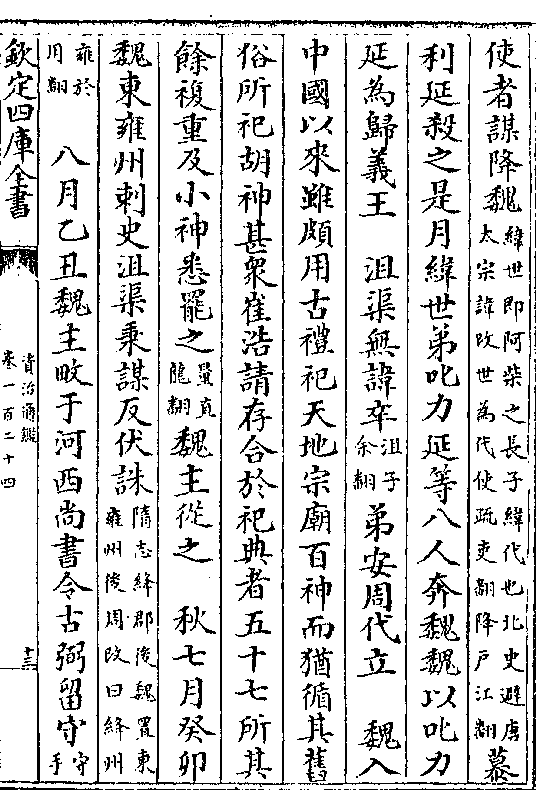 使者謀降魏緯世即阿柴之長子緯代也北史避唐太宗諱改世為代使疏吏翻降戶江翻慕
利延殺之是月緯世弟叱力延等八人奔魏魏以叱力
延為歸義王 沮渠無諱卒沮子余翻弟安周代立 魏入
中國以來雖頗用古禮祀天地宗廟百神而猶循其舊
俗所祀胡神甚衆崔浩請存合於祀典者五十七所其
餘複重及小神悉罷之重直龍翻魏主從之 秋七月癸卯
魏東雍州刺史沮渠秉謀反伏誅隋志絳郡後魏置東雍州後周改曰絳州
雍於用翻 八月乙丑魏主畋于河西尚書令古弼留守守手
欽定四庫全書
資治通鑑
卷一百二十四
十三